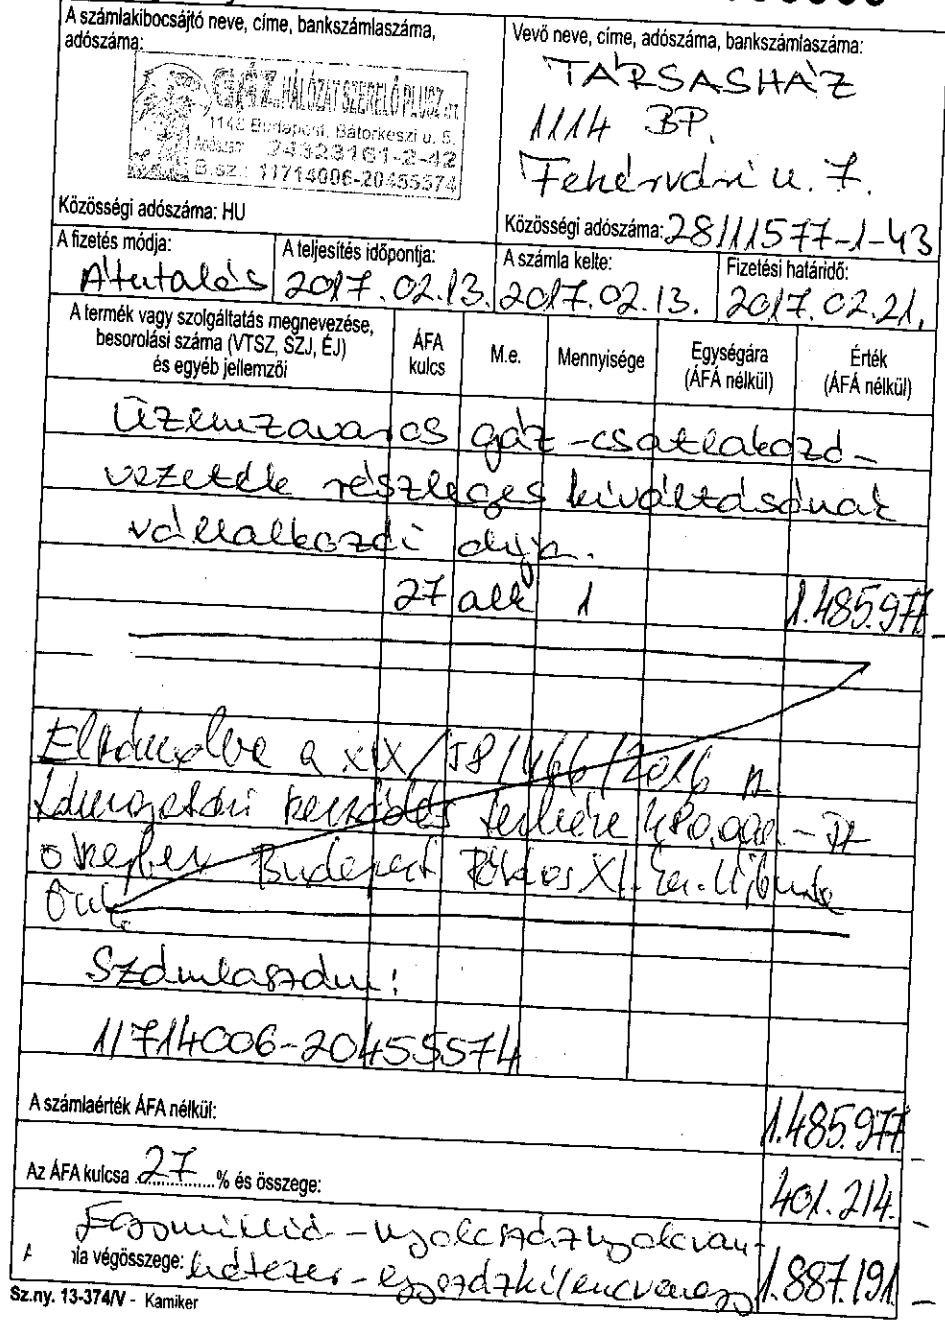 A számlakibocsájtó neve, címe, bankszámlaszáma,
adószáma:
GÁZHÁLÓZATSZERELŐ PLUSZ
Budapest, Bátorkeszi u. 5.
24323161-2-42
B.sz.: 11714006-20455574
Közösségi adószáma: HU
Vevő neve, címe, adószáma, bankszámlaszáma:
TÁRSASHÁZ
1114 BP.
Fehérvári u. 7.
Közösségi adószáma: 28111577-1-43
A fizetés módja:
Átutalás
A teljesítés időpontja:
2017.02.13.
A számla kelte:
2017.02.13.
Fizetési határidő:
2017.02.21.
A termék vagy szolgáltatás megnevezése,
besorolási száma (VTSZ, SZJ, ÉJ)
és egyéb jellemzői
ÁFA
kulcs
M.e.
Mennyisége
Egységára
(ÁFÁ nélkül)
Érték
(ÁFÁ nélkül)
Üzemzavaros gáz-csatlakozó-
vezeték részleges kiváltásának
vállalkozói díja.
27 alk 1 1.485.977.-
Elszámolva a XIX/58/466/2016
támogatási szerződés terhére 480.000.- Ft
összegben Budapest Főváros XI. Ker. Újbuda
Önk.
Számlaszám:
11714006-20455574
A számlaérték ÁFA nélkül: 1.485.977.-
Az ÁFA kulcsa 27 % és összege: 401.214.-
Egymillió-nyolcszáznyolcvan-
végösszege: hétezer-egyszázkilencvenegy 1.887.191.-
Sz.ny. 13-374/V - Kamiker